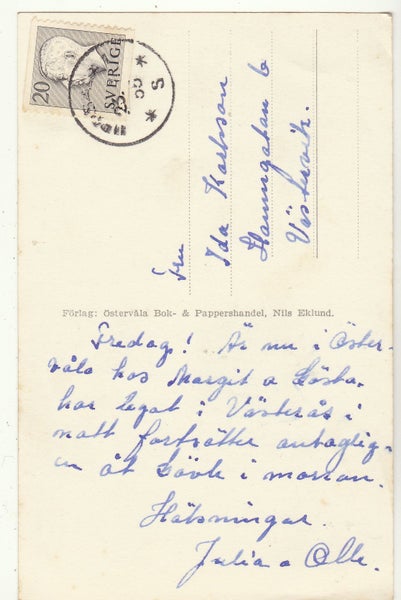 20
SVERIGE
S
Fru
Ida Karlsson
Hamngatan 6
Västervik.
Förlag: Östervåla Bok- & Pappershandel, Nils Eklund.
Fredag! Är nu i Öster-
våla hos Margit o Gösta.
har legat i Västerås i
natt fortsätter antaglig-
en åt Gävle i morron.
Hälsningar.
Julia o Olle.